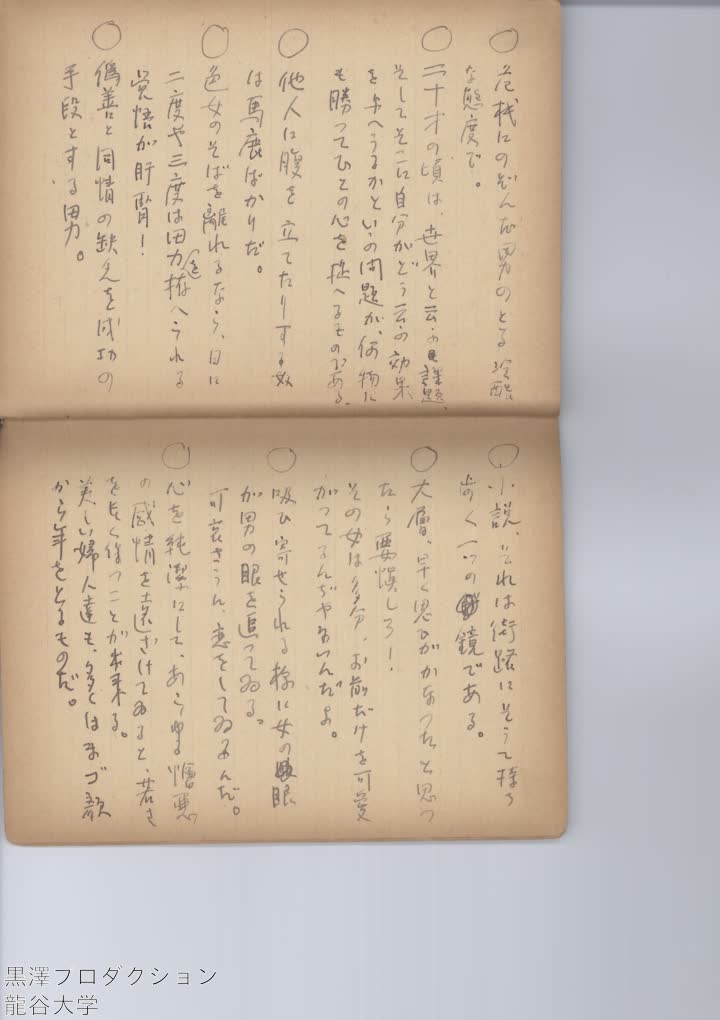 ○ 危机にのぞんだ男のとる冷酷
な態度で。
○ 二十才の頃は、世界と云ふ課題、
そしてそこに自分がどう云ふ効果
を与へうるかといふ問題が、何物に
も勝ってひとの心を捉へるものである、
○ 他人に腹を立てたりする奴
は馬鹿ばかりだ。
○ 色女のそばを離れるなら、日に
二度や三度は男を拵へられる
覚悟が肝腎！
○ 偽善と同情の缺乏を成功の
手段とする男。
○ 小説、それは街路にそうて持ち
歩く一つの鏡である。
○ 大層、早く思ひがかなったと思っ
たら要慎しろ！
その女は多分、お前だけを可愛
がってるんぢやないんだよ。
○ 吸ひ寄せられる様に女の眼
が男の眼を追ってゐる。
可哀さうに、恋をしてゐるんだ。
○ 心を純潔にして、あらゆる憎悪
の感情を遠ざけてゐると、若さ
を長く保つことが出来る。
美しい婦人達も、多くはまづ顔
から年をとるものだ。
黒澤プロダクション
龍谷大学